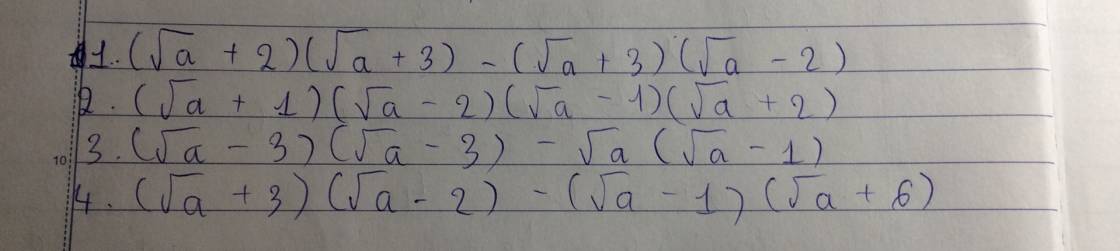 1. (√a + 2)(√a + 3) - (√a + 3)(√a - 2)
2. (√a + 1)(√a - 2)(√a - 1)(√a + 2)
10 3. (√a - 3)(√a - 3) - √a (√a - 1)
4. (√a + 3)(√a - 2) - (√a - 1)(√a + 6)